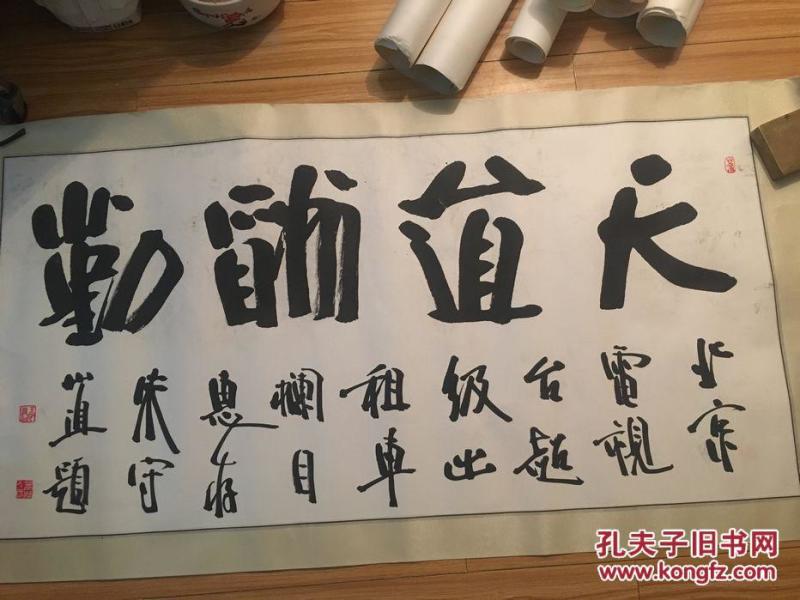 天道酬勤
北京
電視
台超
级出
租車
欄目
惠存
朱守
道題
孔夫子旧书网
www.kongfz.com